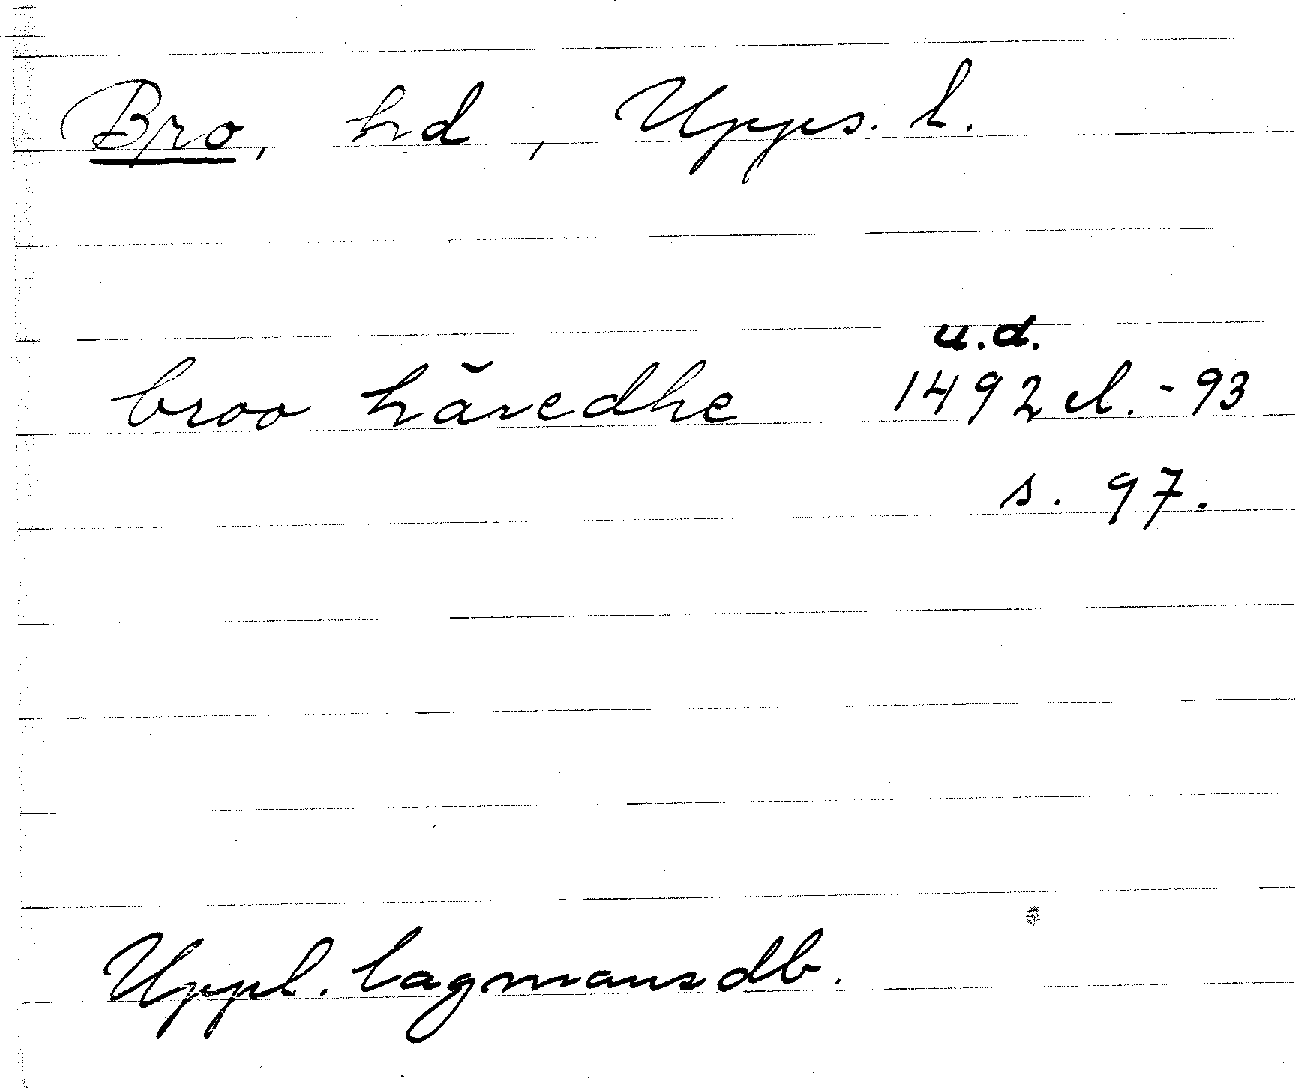 Bro, hd, Upps. l.
u.d.
broo häredhe 1492 el. - 93
s. 97.
Uppl. lagmansdb.